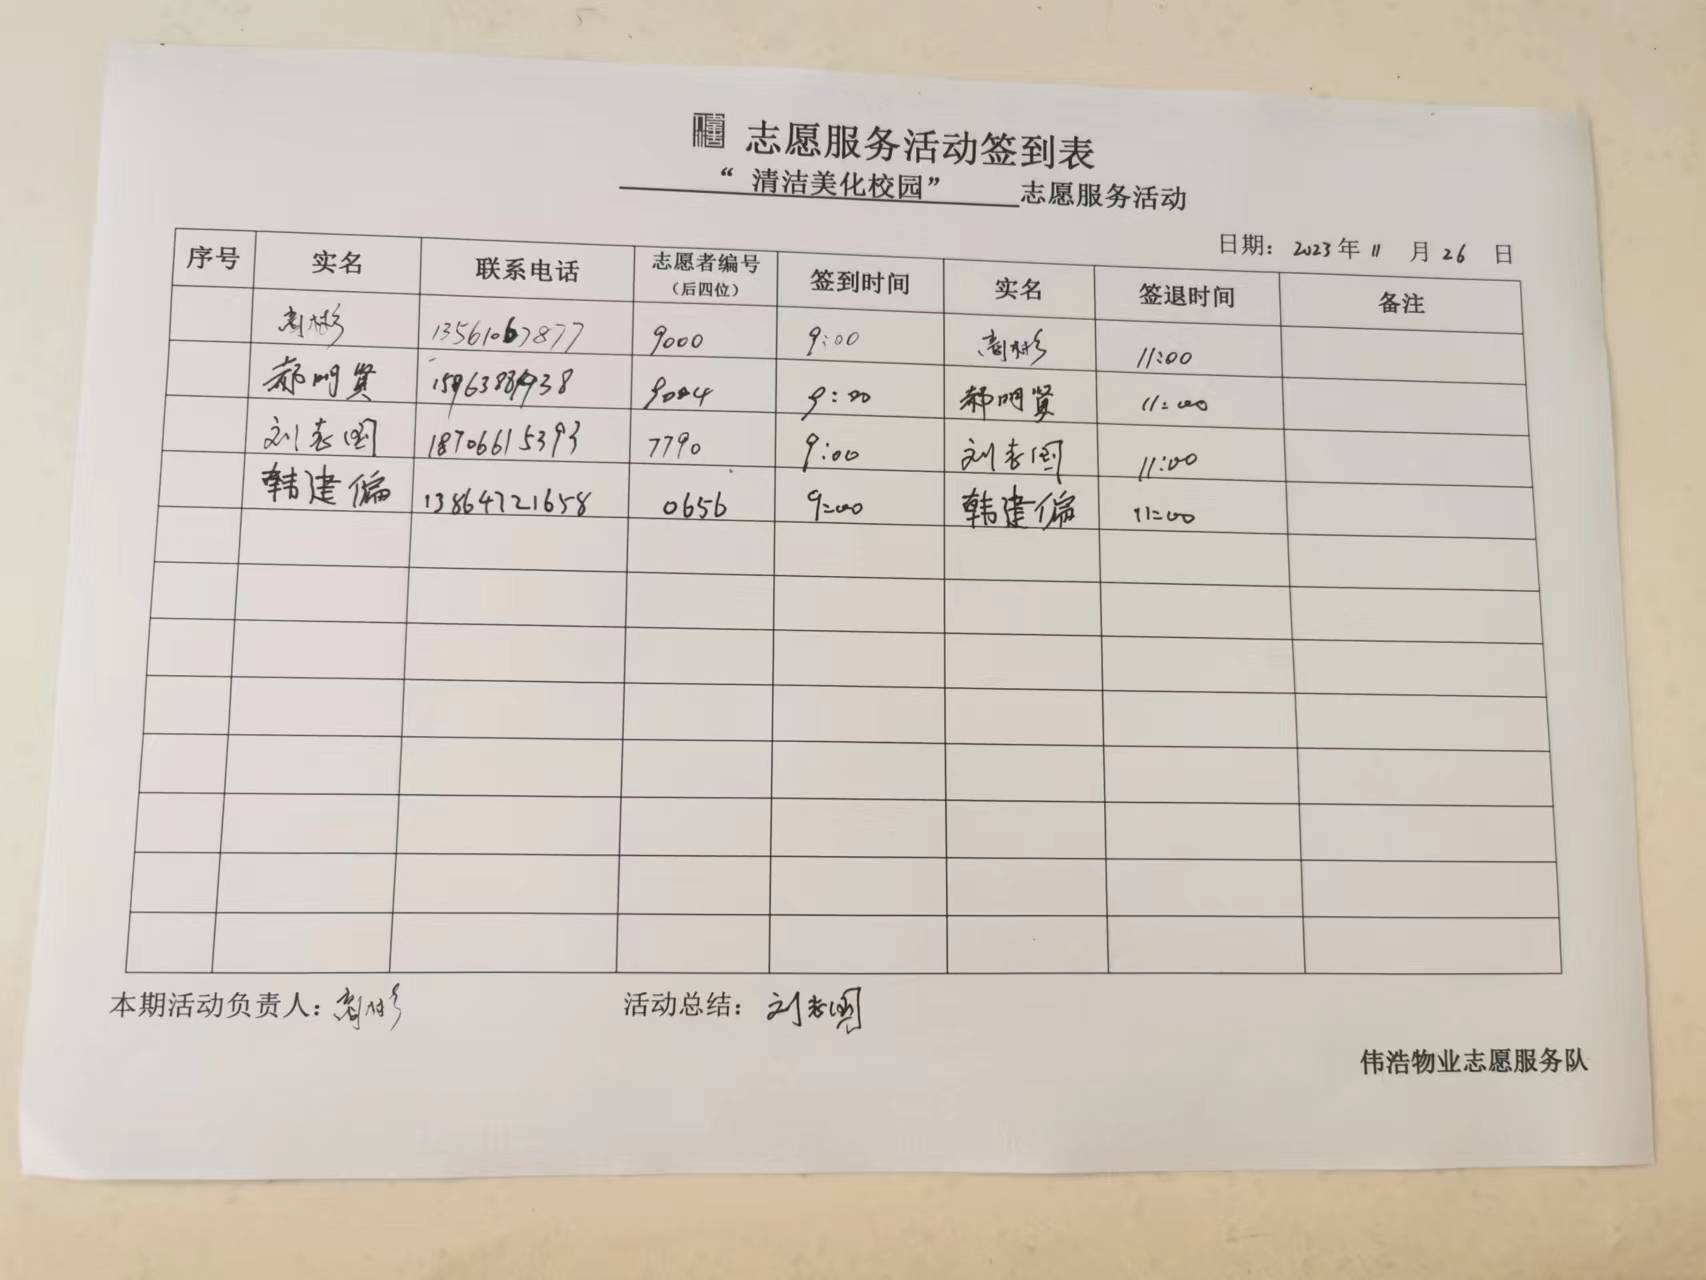 志愿服务活动签到表
“ 清洁美化校园” 志愿服务活动
日期： 2023 年 11 月 26 日
序号 实名 联系电话 志愿者编号 （后四位） 签到时间 实名 签退时间 备注
13561067877 9000 9:00 11:00
郝明贤 9004 9:00 郝明贤 11:00
刘志国 18706615393 7790 9:00 刘志国 11:00
韩建偏 13864721658 0656 9:00 韩建偏 11:00
本期活动负责人： 活动总结： 刘志国
伟浩物业志愿服务队